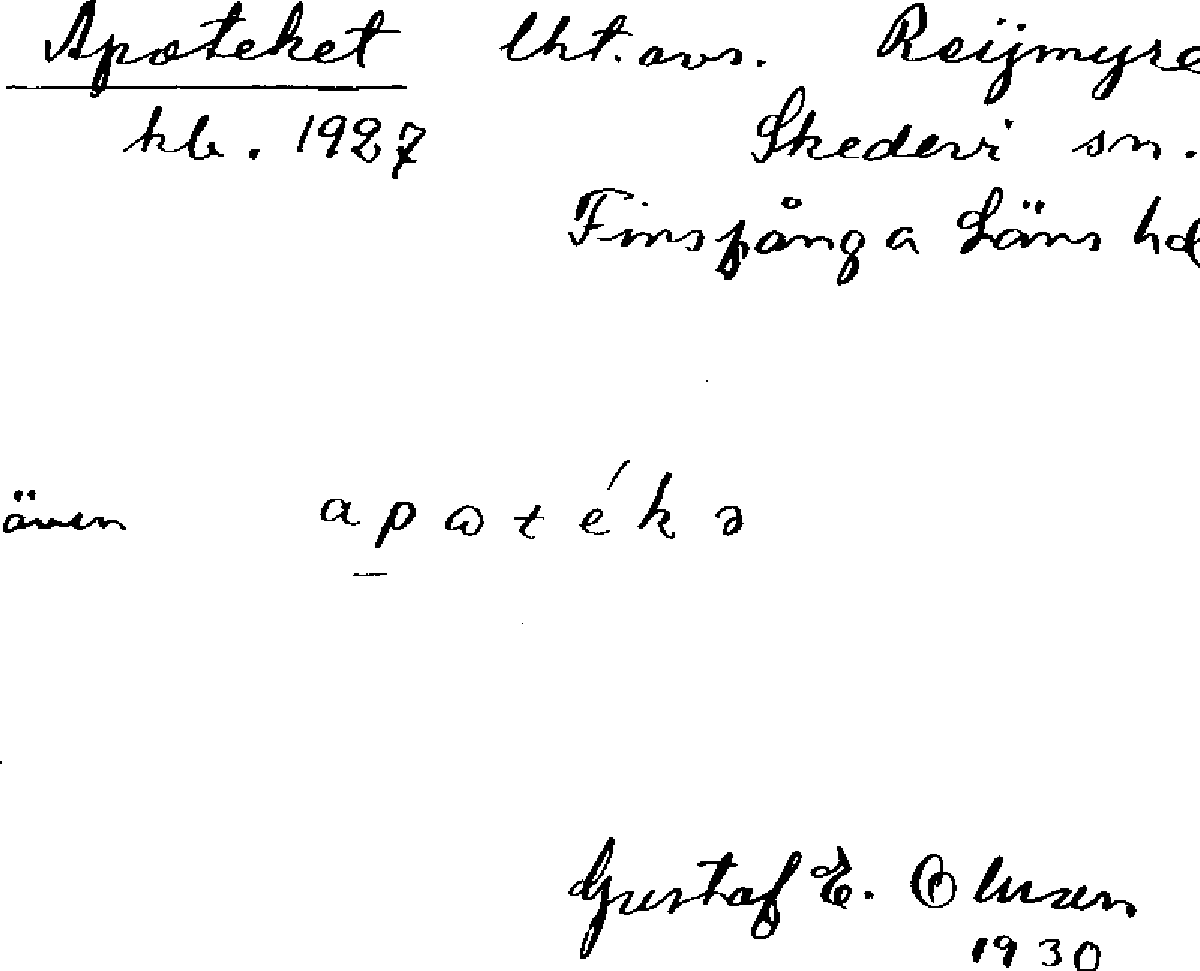 Apoteket lht.avs. Reijmyre
kb. 1927 Skedevi sn.
Finspånga Läns hd
även apωtékə
Gustaf E.
1930